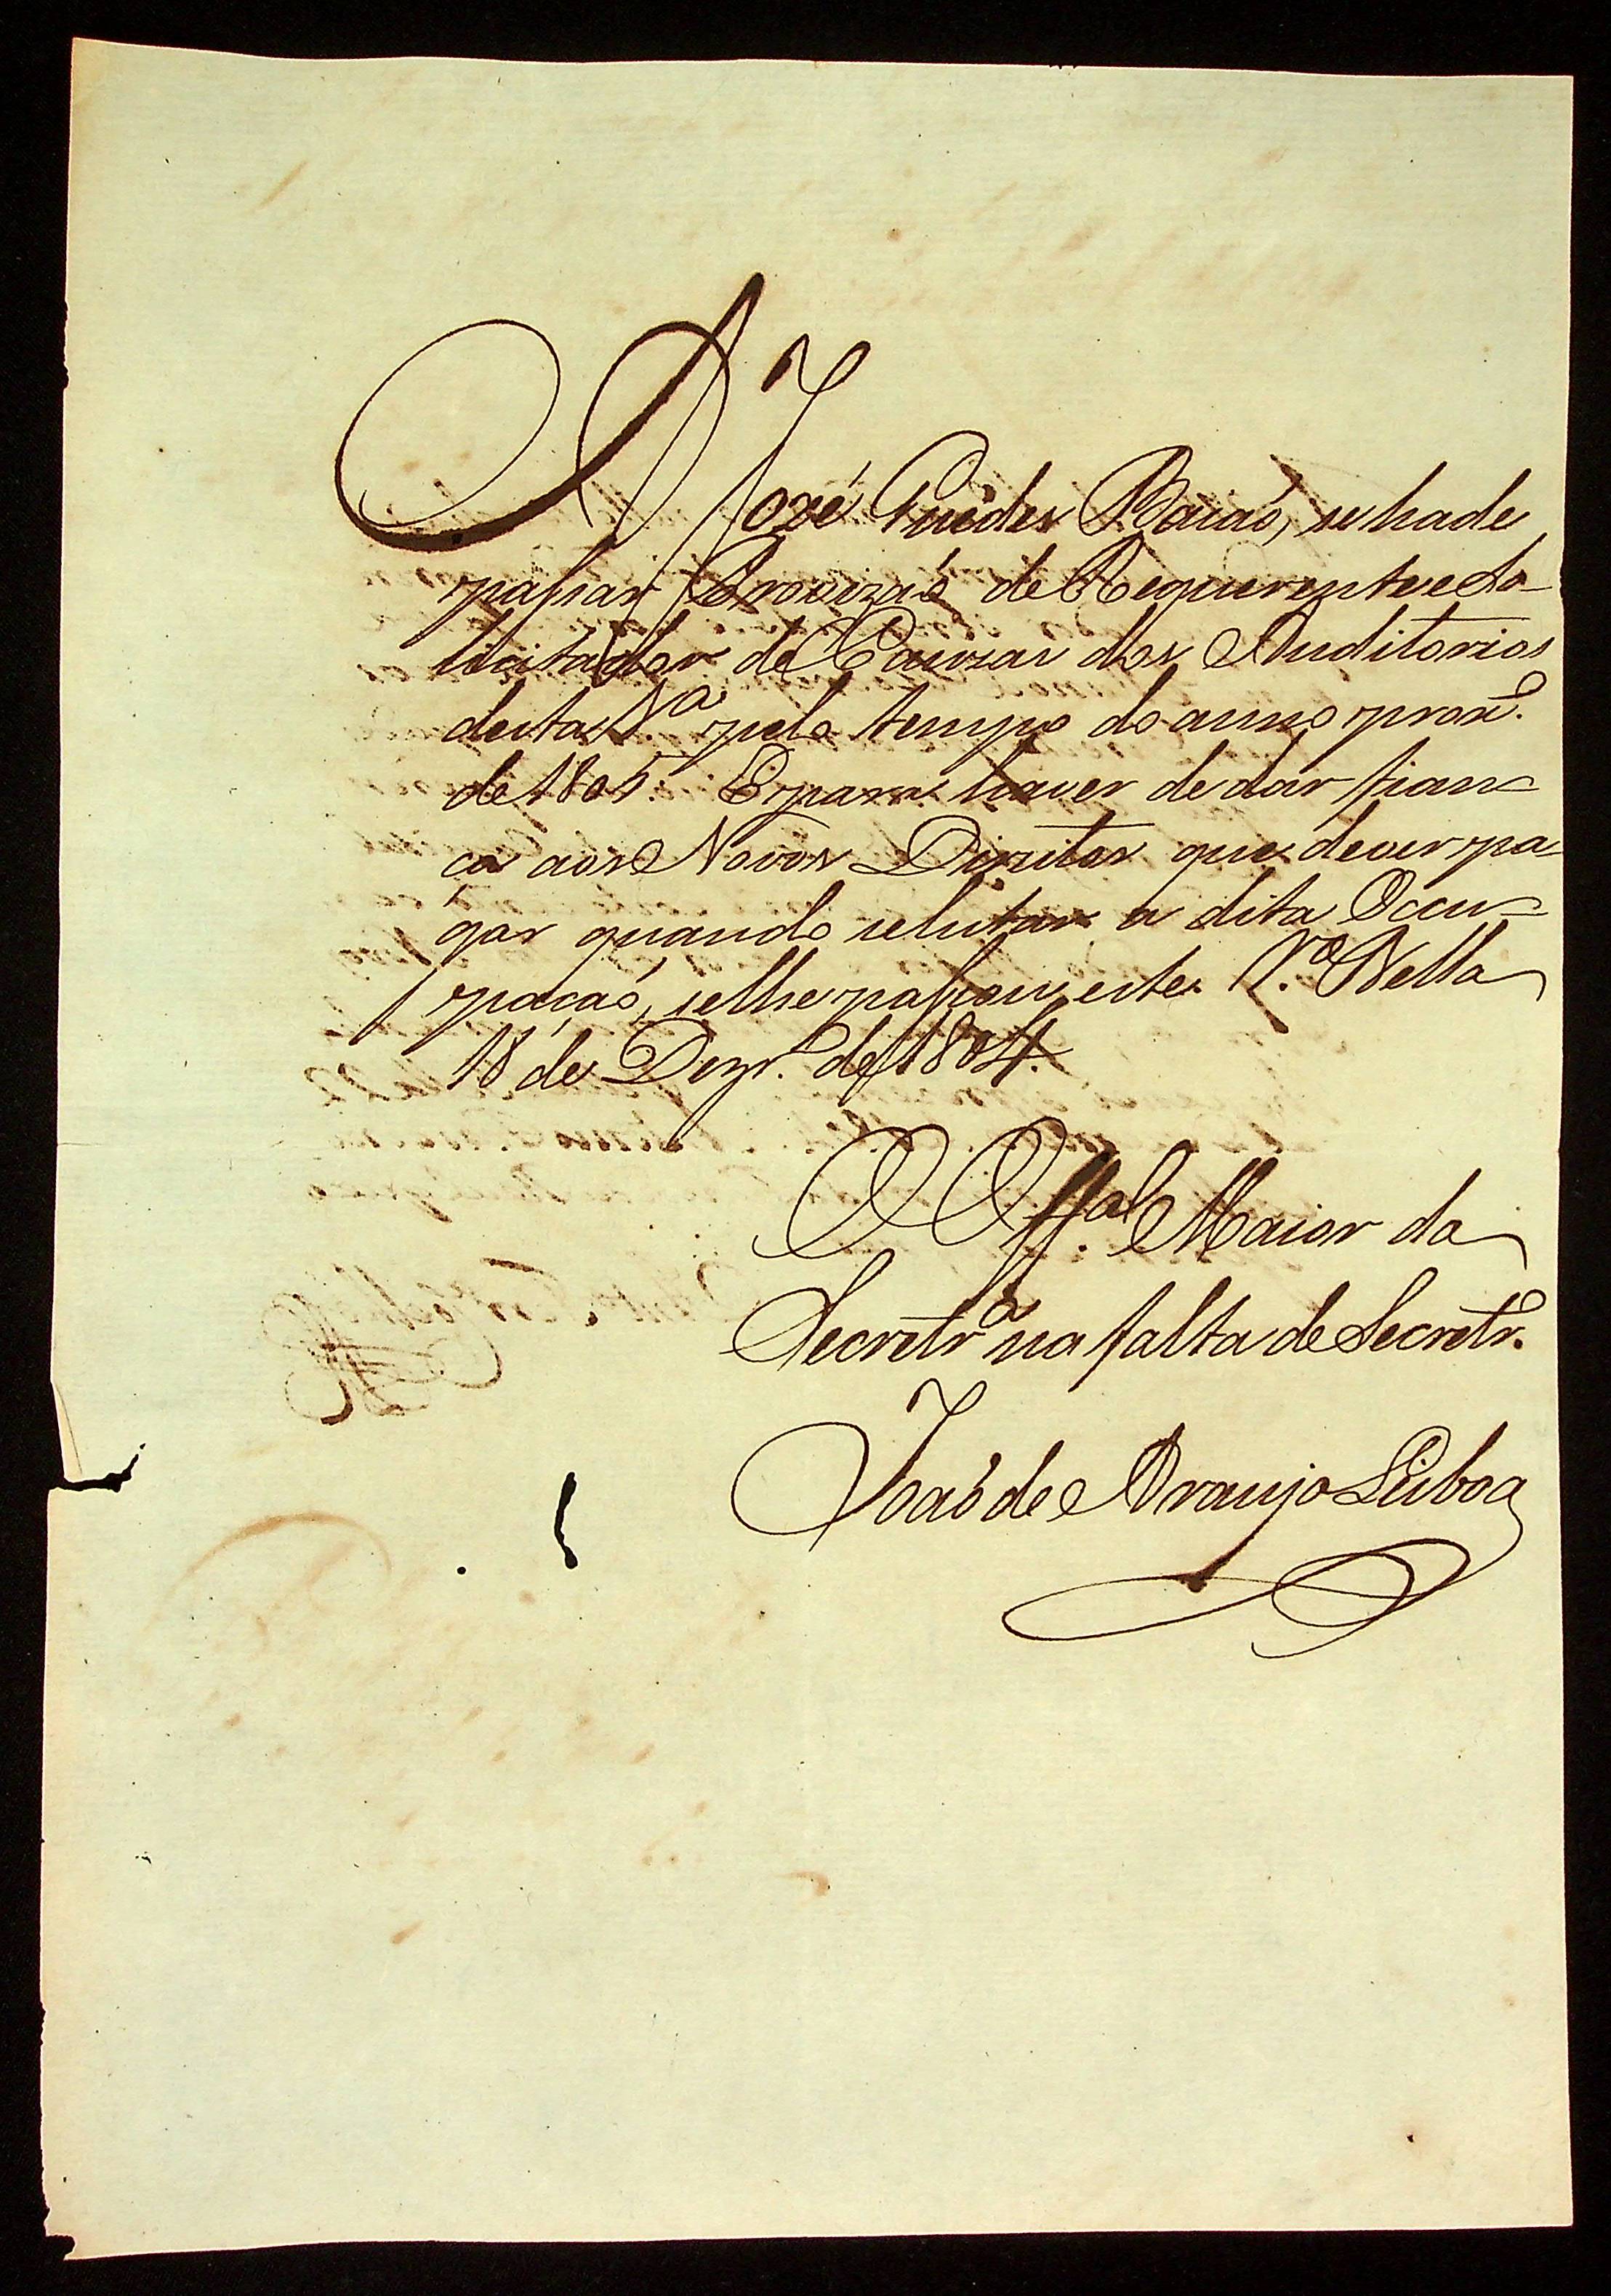 A Jozé Guedes Baiaõ, se hade
passar Provizaõ de Requerente e So-
licitador de Cauzas dos Auditorios
desta V.a pelo tempo do anno prox.o
de 1805. E para haver de dar fian-
ça aos Novos Direitos que dever pa-
gar quando selutar a dita Occu-
paçaõ, selhe passou este. V.a Bella
18 de Dezr.o de 1804.
O Off.al Maior da
Secretr.a na falta de Secretr.o
Joaõ de Araujo Lisboa